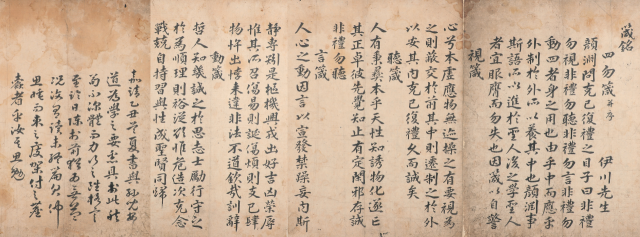 箴銘
四勿箴 并序 伊川先生
顔淵問克己復禮之目子曰非禮
勿視非禮勿聽非禮勿言非禮勿
動四者身之用也由乎中而應乎
外制於外所以養其中也顔淵事
斯語所以進於聖人後之學聖人
者宜服膺而勿失也因箴以自警
視箴
心兮本虛應物無迹操之有要視為
之則蔽交於前其中則遷制之於外
以安其內克己復禮久而誠矣
聽箴
人有秉彝本乎天性知誘物化遂亡
其正卓彼先覺知止有定閑邪存誠
非禮勿聽
言箴
人心之動因言以宣發禁躁妄內斯
靜專矧是樞機興戎出好吉凶榮辱
惟其所召傷易則誕傷煩則支己肆
物忤出悖來違非法不道欽哉訓辭
動箴
哲人知幾誠之於思志士勵行守之
於為順理則裕從欲惟危造次克念
戰兢自持習與性成聖賢同歸
嘉靖乙丑夏書與孫兒安
道為學之要